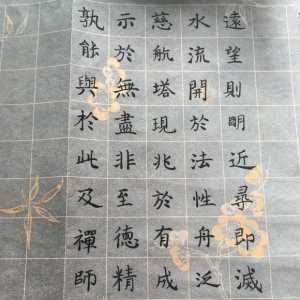 遠望則明近尋即滅
水流開於法性舟泛
慈航塔現兆於有成
示於無盡非至德精
孰能與於此及禪師